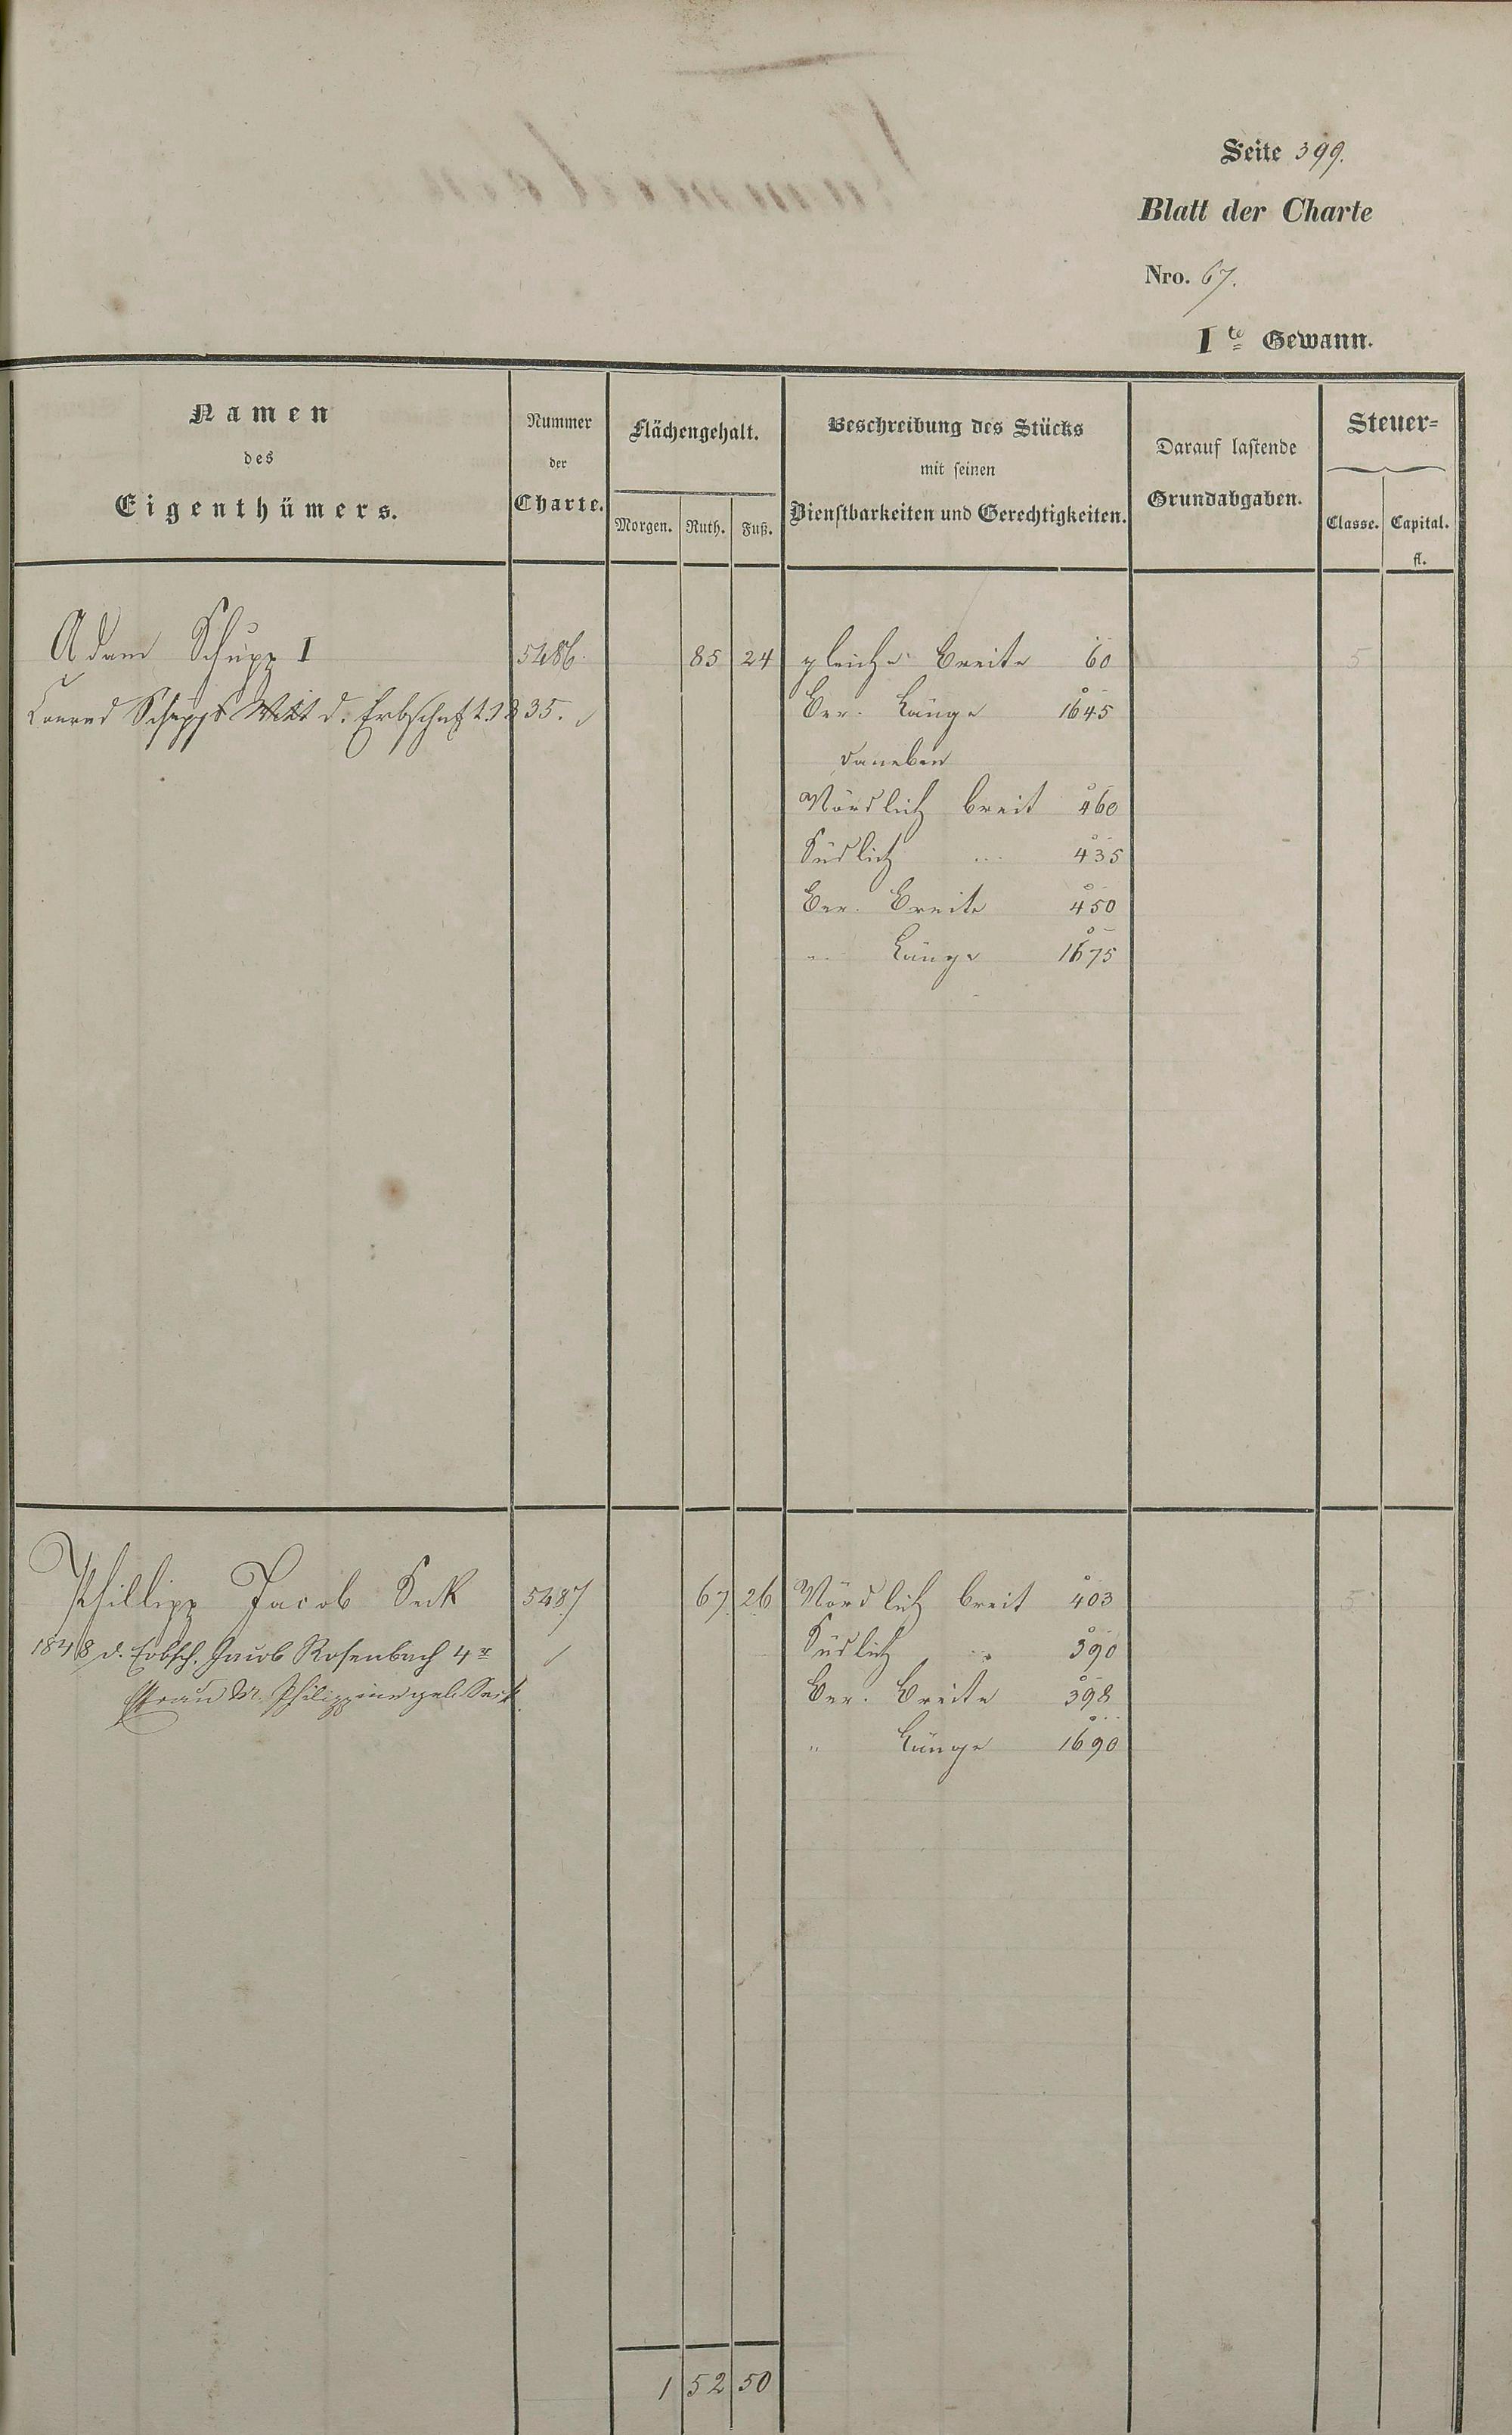 Seite 399.
Blatt der Charte
Nro. 67.
I te Gewann.
Namen des Eigenthümers.
Nummer der Charte.
Flächengehalt.
Morgen. Ruth. Fuß.
Beschreibung des Stücks
mit seinen
Dienstbarkeiten und Gerechtigkeiten.
Darauf lastende
Grundabgaben.
Steuer-
Classe. Capital.
fl.
Adam Schupp I 5486. 85 24 gleiche Breite 60 5
Conrad Schupps Wtt d. Erbschaft 1835. Ber. Länge 1645
daneben
Nördlich breit 460
Südlich ... 435
Ber. Breite 450
" Länge 1675
Phillipp Jacob Seck 5487 67 26 Nördlich breit 403 5
1848 d. Erbsch. Jacob Rosenbach 4r Südlich " 390
Frau M. Philippine geb. Seck. Ber. Breite 398
" Länge 1690
1 52 50